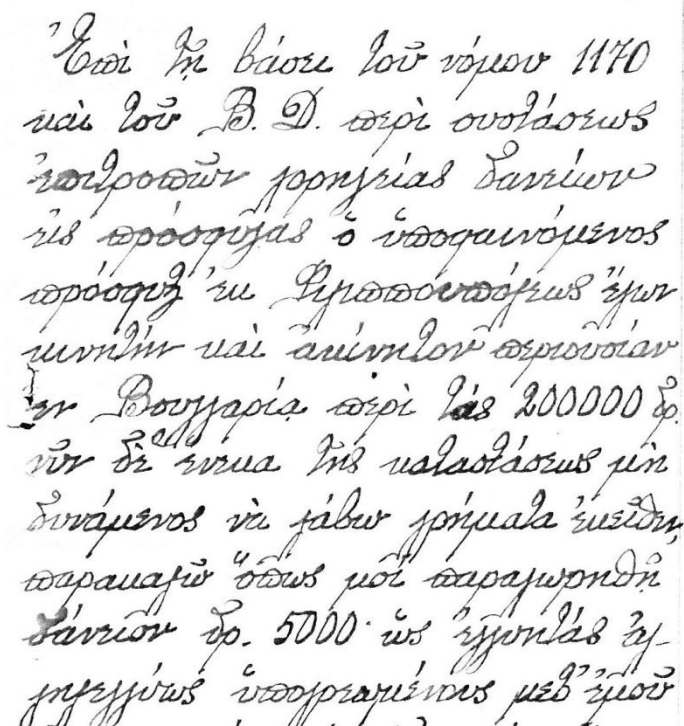 Ἐπὶ τῇ βάσει τοῦ νόμου 1170
καὶ τοῦ Β. Δ. περὶ συστάσεως
ἐπιτροπῶν χορηγείας δανείων
εἰς πρόσφυγας ὁ ὑποφαινόμενος
πρόσφυξ ἐκ Φιλιππουπόλεως ἔχων
κινητὴν καὶ ἀκίνητον περιουσίαν
ἐν Βουλγαρίᾳ περὶ τὰς 200000 δρ.
νῦν δὲ ἕνεκα τῆς καταστάσεως μὴ
δυνάμενος νὰ λάβω χρήματα ἐκεῖθεν,
παρακαλῶ ὅπως μοὶ παραχωρηθῇ
δάνειον δρ. 5000 ὡς ἐγγυητὰς ἀλ-
ληλεγγύως ὑποχρεωμένους μετ' ἐμοῦ